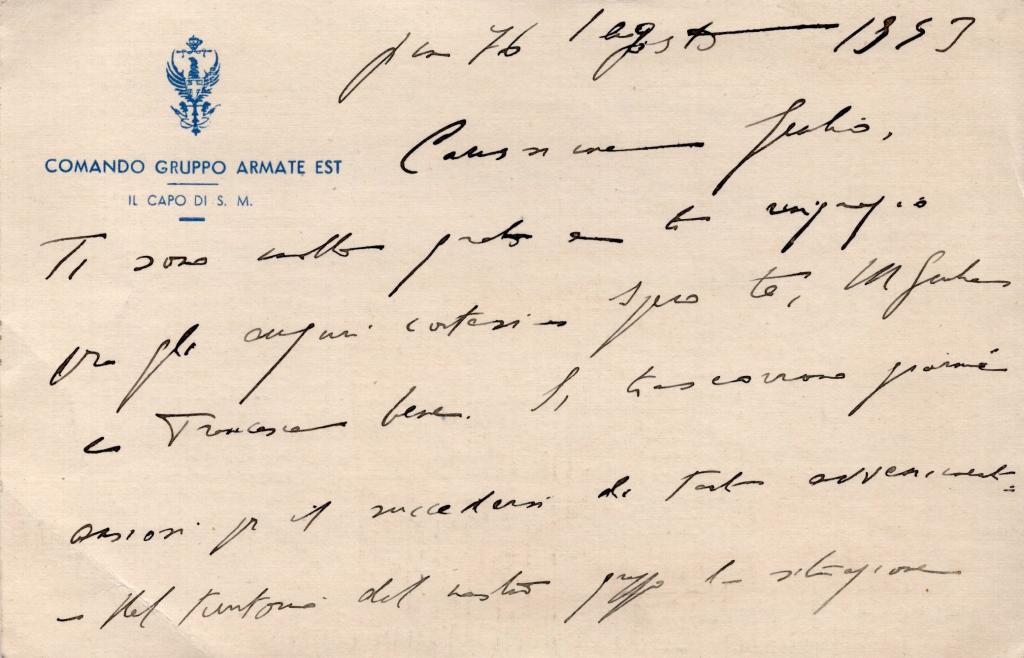 pm 76 1 agosto 1943
COMANDO GRUPPO ARMATE EST
IL CAPO DI S. M.
Carissimo Giulio,
Ti sono molto grato e ti ringrazio
per gli auguri cortesi. Spero te,
e Francesca bene. Si trascorrono giorni
ansiosi per il succedersi di tanti avvenimenti
Nel territorio del nostro gruppo la situazione